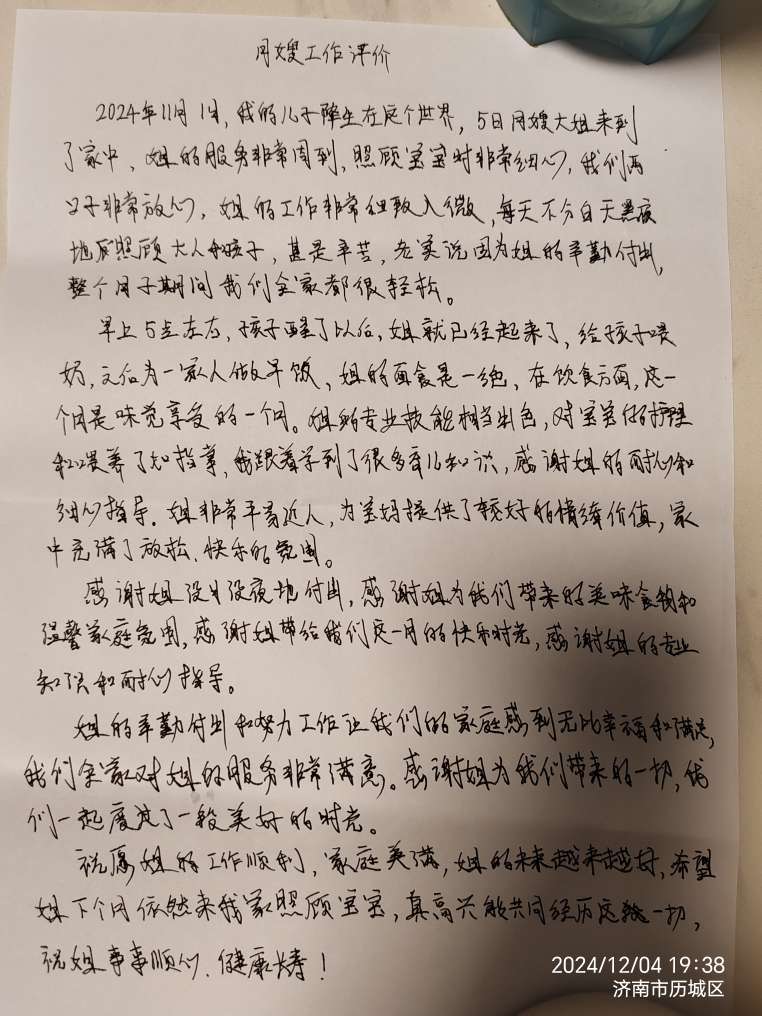 月嫂工作评价
2024年11月1日,我的儿子降生在这个世界,5日月嫂大姐来到
了家中、姐的服务非常周到,照顾宝宝时非常细心,我们两
口子非常放心,姐的工作非常细致入微,每天不分白天黑夜
地照顾大人和孩子,甚是辛苦,老实说因为姐的辛勤付出,
整个月子期间我们全家都很轻松。
早上5点左右,孩子醒了以后,姐就已经起来了,给孩子喂
奶,之后为一家人做早饭、姐的面食是一绝,在饮食方面,这一
个月是味觉享受的一个月。姐的专业技能相当出色,对宝宝的护理
和喂养了如指掌,我跟着学到了很多育儿知识,感谢姐的耐心和
细心指导.姐非常平易近人,为宝妈提供了较好的情绪价值,家
中充满了放松、快乐的氛围。
感谢姐没日没夜地付出,感谢姐为我们带来的美味食物和
温馨家庭氛围,感谢姐带给我们这一月的快乐时光,感谢姐的专业
知识和耐心指导。
姐的辛勤付出和努力工作让我们的家庭感到无比幸福和满足,
我们全家对姐的服务非常满意。感谢姐为我们带来的一切,我
们一起度过了一段美好的时光。
祝愿姐的工作顺利,家庭美满,姐的未来越来越好,希望
姐下个月依然来我家照顾宝宝,真高兴能共同经历这一切,
祝姐事事顺心、健康长寿!
2024/12/04 19:38
济南市历城区